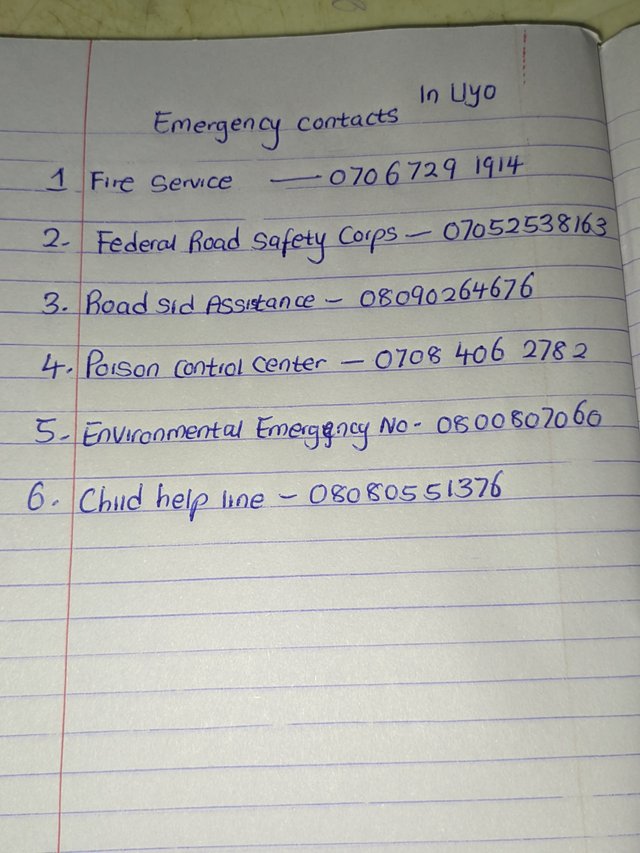 Emergency contacts In Uyo
1 Fire Service — 0706 729 1914
2- Federal Road Safety Corps - 07052538163
3. Road Sid Assistance - 08090264676
4. Poison Control Center - 0708 406 2782
5- Environmental Emergency No - 0800807060
6. Child help line - 08080551376